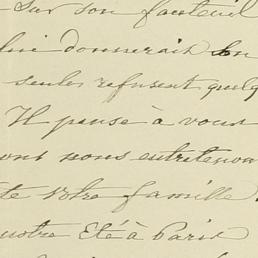 sur son fauteuil
lui donnerait bon
seules refusent quelq
Il pense à vous
ont nous entretenon
te votre famille.
notre Été à Paris